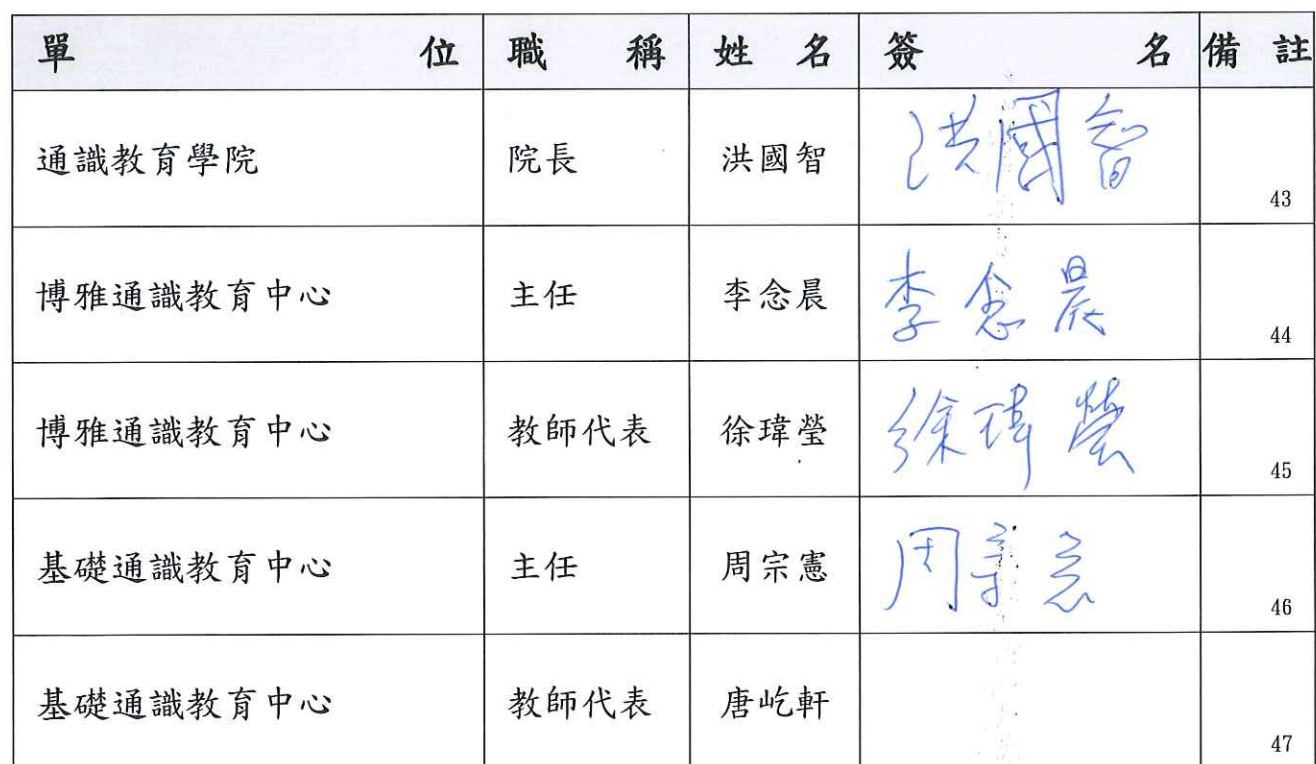 單位 職稱 姓名 簽名 備註
通識教育學院 院長 洪國智 洪國智 43
博雅通識教育中心 主任 李念晨 李念晨 44
博雅通識教育中心 教師代表 徐瑋瑩 徐瑋瑩 45
基礎通識教育中心 主任 周宗憲 周宗憲 46
基礎通識教育中心 教師代表 唐屹軒 47